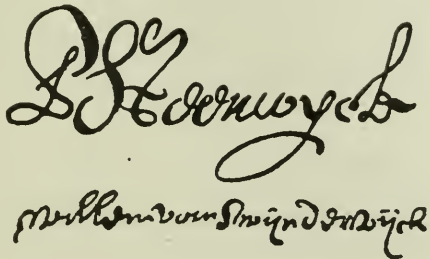 P Steenwyck
Willem van Swijnderwijck